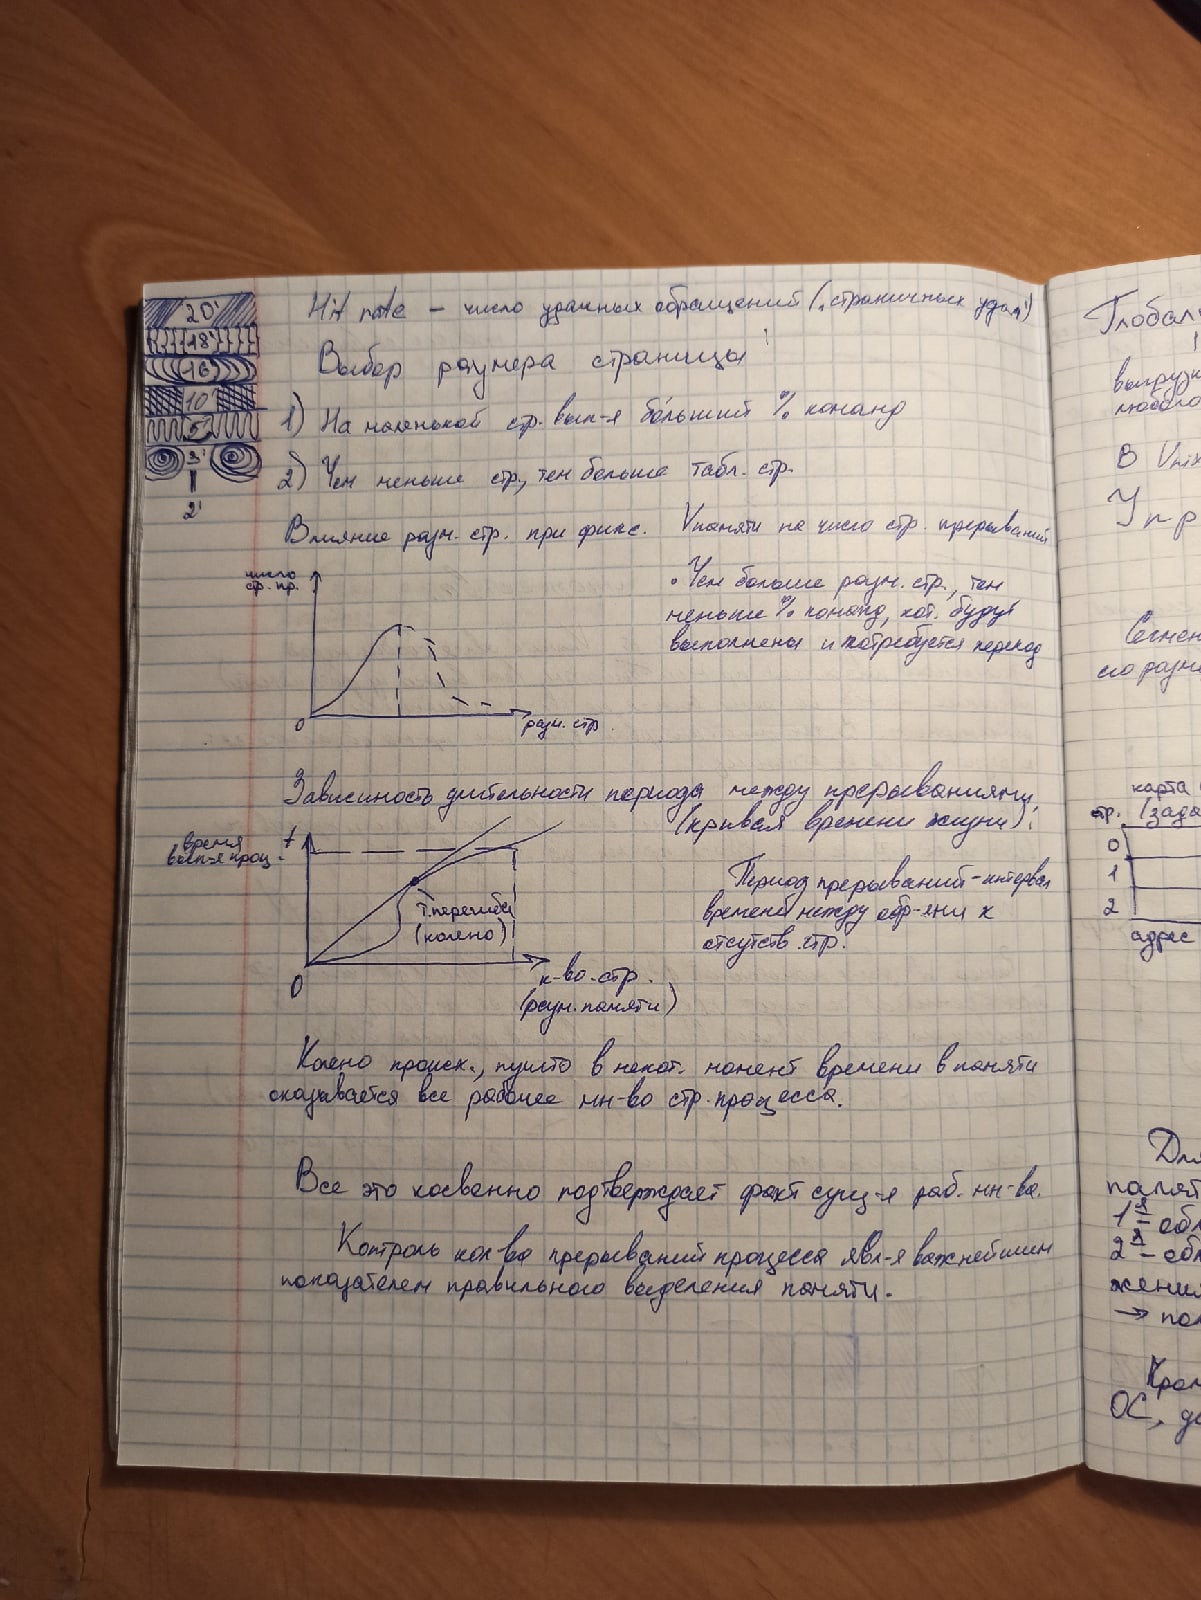 20'
18'
16'
10'
5'
3'
2'
Hit rate – число удачных обращений ("страничных удач")
Выбор размера страницы:
1) На маленькой стр. вып-я бо́льший % команд
2) Чем меньше стр., тем больше табл. стр.
Влияние разм. стр. при фикс. V памяти на число стр. прерываний
число
стр. пр.
0
разм. стр.
• Чем больше разм. стр., тем
меньше % команд, кот. будут
выполнены и потребуется переход
Зависимость длительности периода между прерываниями
(кривая времени жизни):
время
вып-я проц.
t
т. перегиба
(колено)
0
к-во стр.
(разм. памяти)
Период прерываний – интервал
времени между обр-ями к
отсутств. стр.
Колено происх., пушто в некот. момент времени в памяти
оказывается все рабочее мн-во стр. процесса.
Все это косвенно подтверждает факт сущ-я раб. мн-ва.
Контроль кол-ва прерываний процесса явл-я важнейшим
показателем правильного выделения памяти.
Глобаль
выгрузк
любого
В Unix
Упр
Сегмен
его разме
карта
стр. (зада
0
1
2
адрес
Для
памят
1я – обл
2я – обл
жения
→ пол
Кром
ОС, до